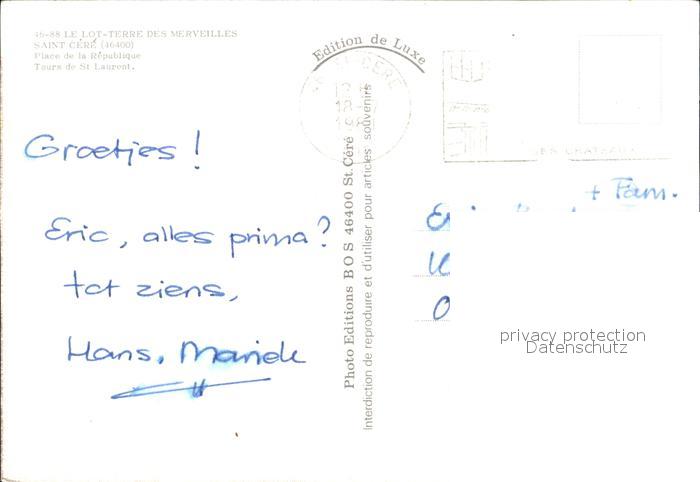 46-88 LE LOT-TERRE DES MERVEILLES
SAINT CÉRÉ (46400)
Place de la République
Tours de St Laurent.
Edition de Luxe
Groetjes !
Eric, alles prima?
tot ziens,
Hans, Marielle
Photo Editions BOS 46400 St. Céré
Interdiction de reproduire et d'utiliser pour articles souvenirs
+ Fam.
privacy protection
Datenschutz